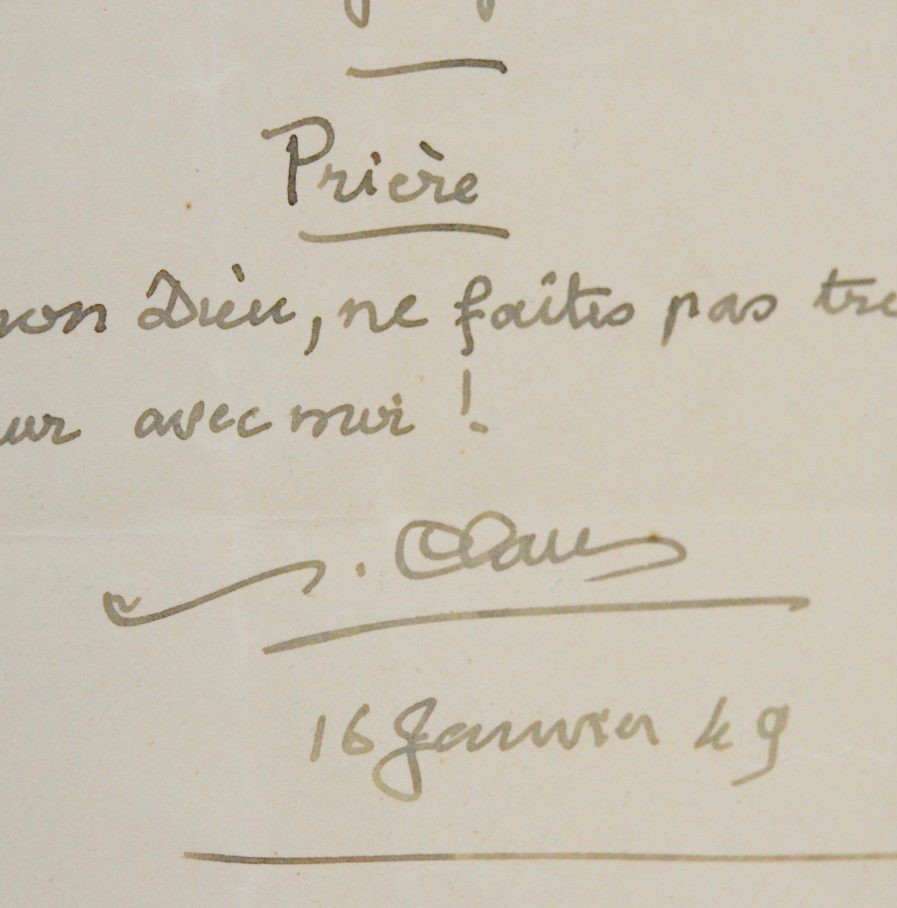 Prière
mon Dieu, ne faîtes pas tro
eur avec moi !
16 Janvier 49